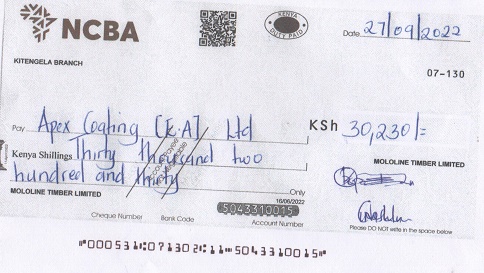 NCBA
KENYA
DUTY PAID
Date 27/09/2022
KITENGELA BRANCH
07-130
Pay Apex Coating [E.A] Ltd
KSh 30,230/=
Kenya Shillings Thirty thousand two
hundred and thirty Only
MOLOLINE TIMBER LIMITED
MOLOLINE TIMBER LIMITED
16/06/2022
5043310015
Cheque Number Bank Code Account Number
Please DO NOT write in the space below
"000531:071302:11 5043310015"